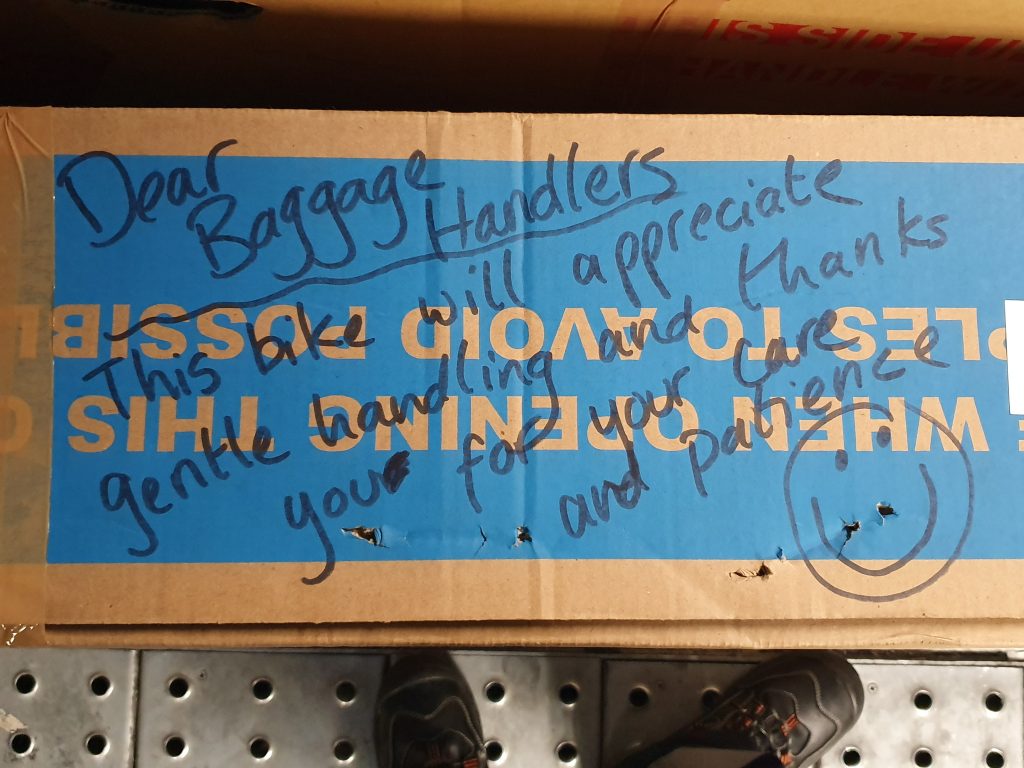 THIS SIDE U
HANDLE WI
Dear
Baggage
Handlers
This bike will appreciate
gentle handling and thanks
you for your care
and patience
WHEN OPENING THIS
PLES TO AVOID POSSIBL